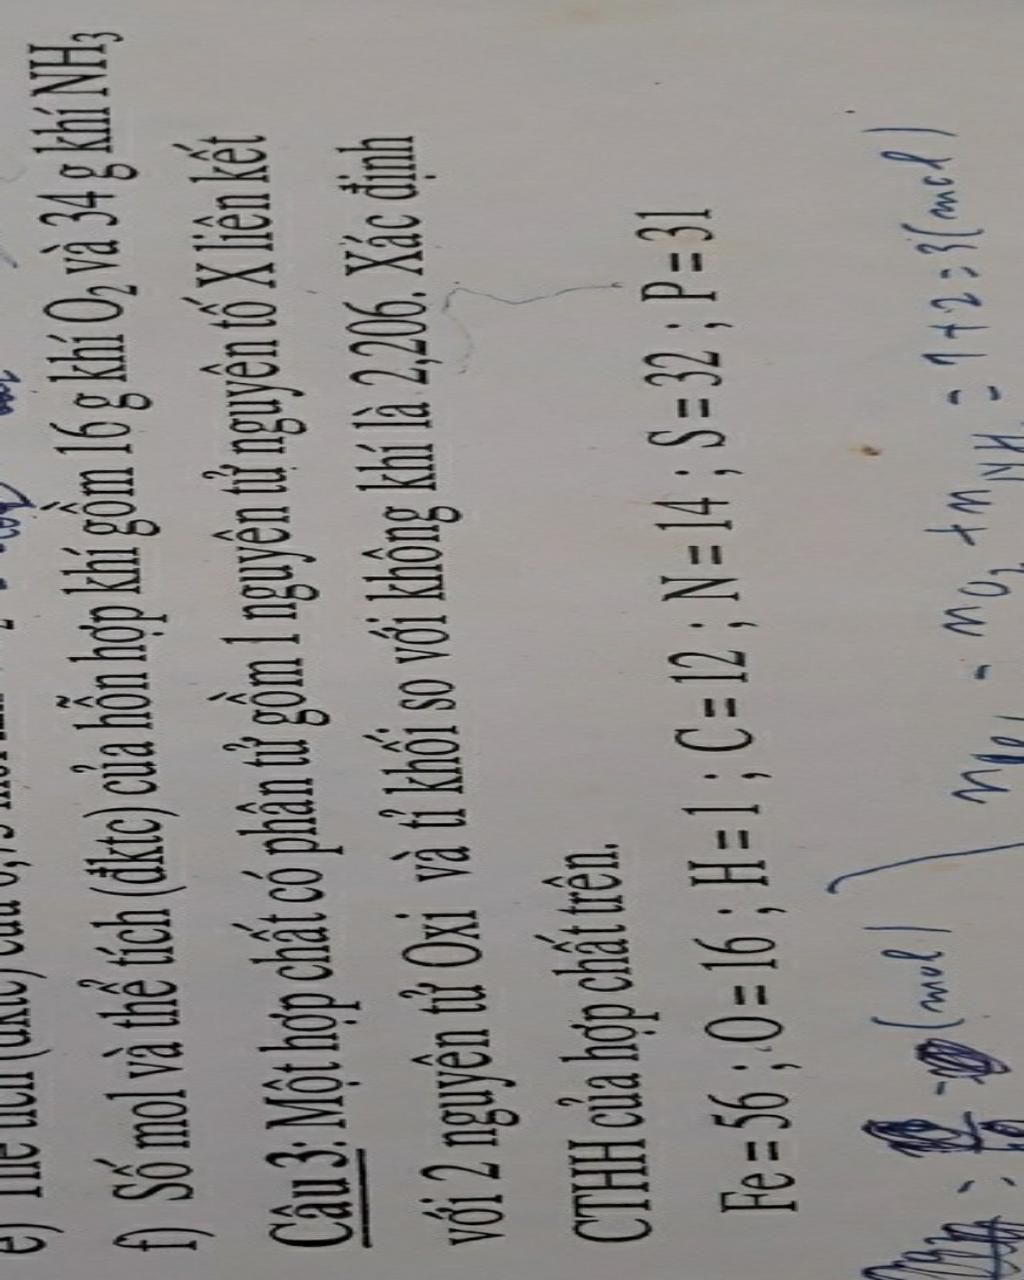 e) Thể tích (đktc) của 0,75 mol
f) Số mol và thể tích (đktc) của hỗn hợp khí gồm 16 g khí O₂ và 34 g khí NH₃
Câu 3: Một hợp chất có phân tử gồm 1 nguyên tử nguyên tố X liên kết
với 2 nguyên tử Oxi và tỉ khối so với không khí là 2,206. Xác định
CTHH của hợp chất trên.
Fe = 56 ; O = 16 ; H = 1 ; C = 12 ; N = 14 ; S = 32 ; P = 31
(mol)
= nO₂ + nNH = 1 + 2 = 3 (mol)